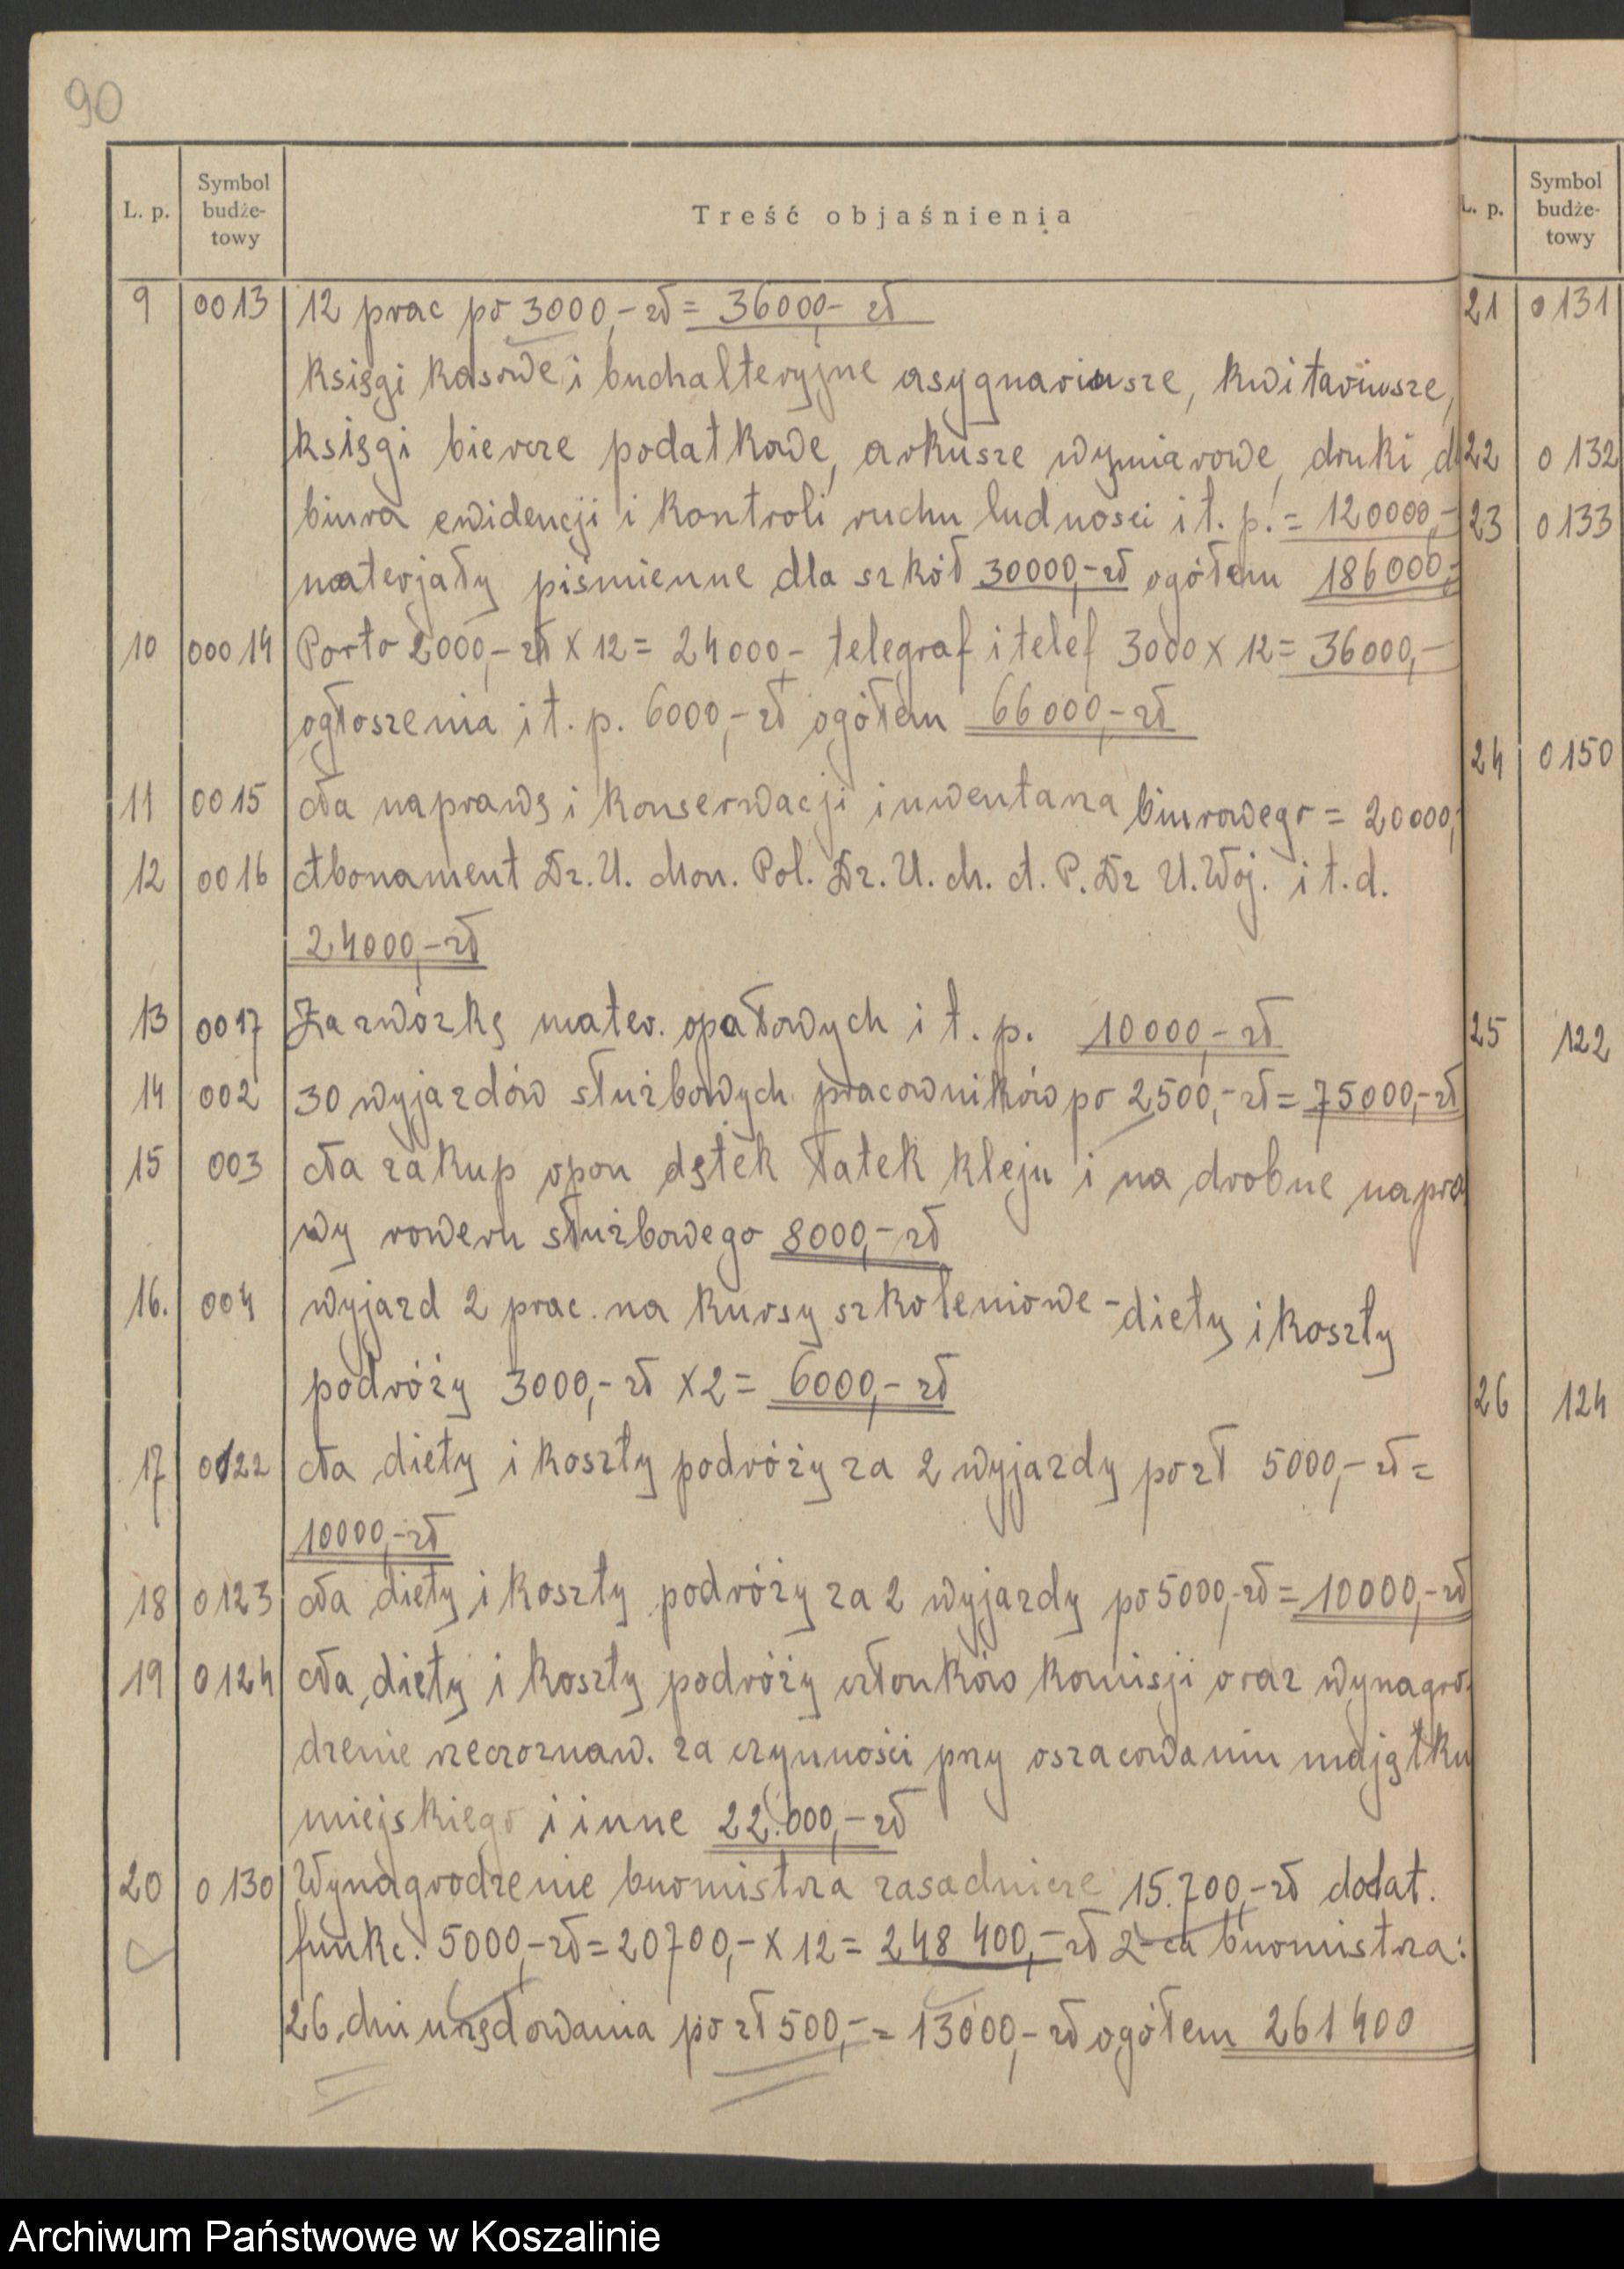 90
L. p. Symbol budże- towy Treść objaśnienia
9 0013 12 prac po 3000,- zł = 36000,- zł
księgi kasowe i buchalteryjne asygnariusze, kwitariusze,
księgi biercze podatkowe, arkusze wymiarowe, druki d
biura ewidencji i kontroli ruchu ludności i t. p. = 120000,-
materjały piśmienne dla szkół 30000,- zł ogółem 186000,-
10 00014 Porto 2000,- zł x 12 = 24000,- telegraf i telef 3000 x 12 = 36000,-
ogłoszenia i t. p. 6000,- zł ogółem 66000,- zł
11 0015 Na naprawę i konserwacji inwentarza biurowego = 20000,-
12 0016 Abonament Dz. U. Mon. Pol. Dz. U. M. A. P. Dz U. Woj. i t. d.
24000,- zł
13 0017 Za zwózkę mater. opałowych i t. p. 10000,- zł
14 002 30 wyjazdów służbowych pracowników po 2500,- zł = 75000,- zł
15 003 Na zakup opon dętek łatek kleju i na drobne napra
wy roweru służbowego 8000,- zł
16. 004 wyjazd 2 prac. na kursy szkoleniowe - diety i koszty
podróży 3000,- zł x 2 = 6000,- zł
17 0122 Na diety i koszty podróży za 2 wyjazdy po zł 5000,- zł =
10000,- zł
18 0123 Na diety i koszty podróży za 2 wyjazdy po 5000,- zł = 10000,- zł
19 0124 Na diety i koszty podróży członków komisji oraz wynagro-
dzenie rzeczoznaw. za czynności przy oszacowaniu majątku
miejskiego i inne 22.000,- zł
20 0130 Wynagrodzenie burmistrza zasadnicze 15.700,- zł dodat.
funkc. 5000,- zł = 20700,- x 12 = 248 400,- zł z-ca burmistrza:
26 dni urzędowania po zł 500,- = 13000,- zł ogółem 261400
L. p. Symbol budże- towy
21 0131
22 0132
23 0133
24 0150
25 122
26 124
Archiwum Państwowe w Koszalinie